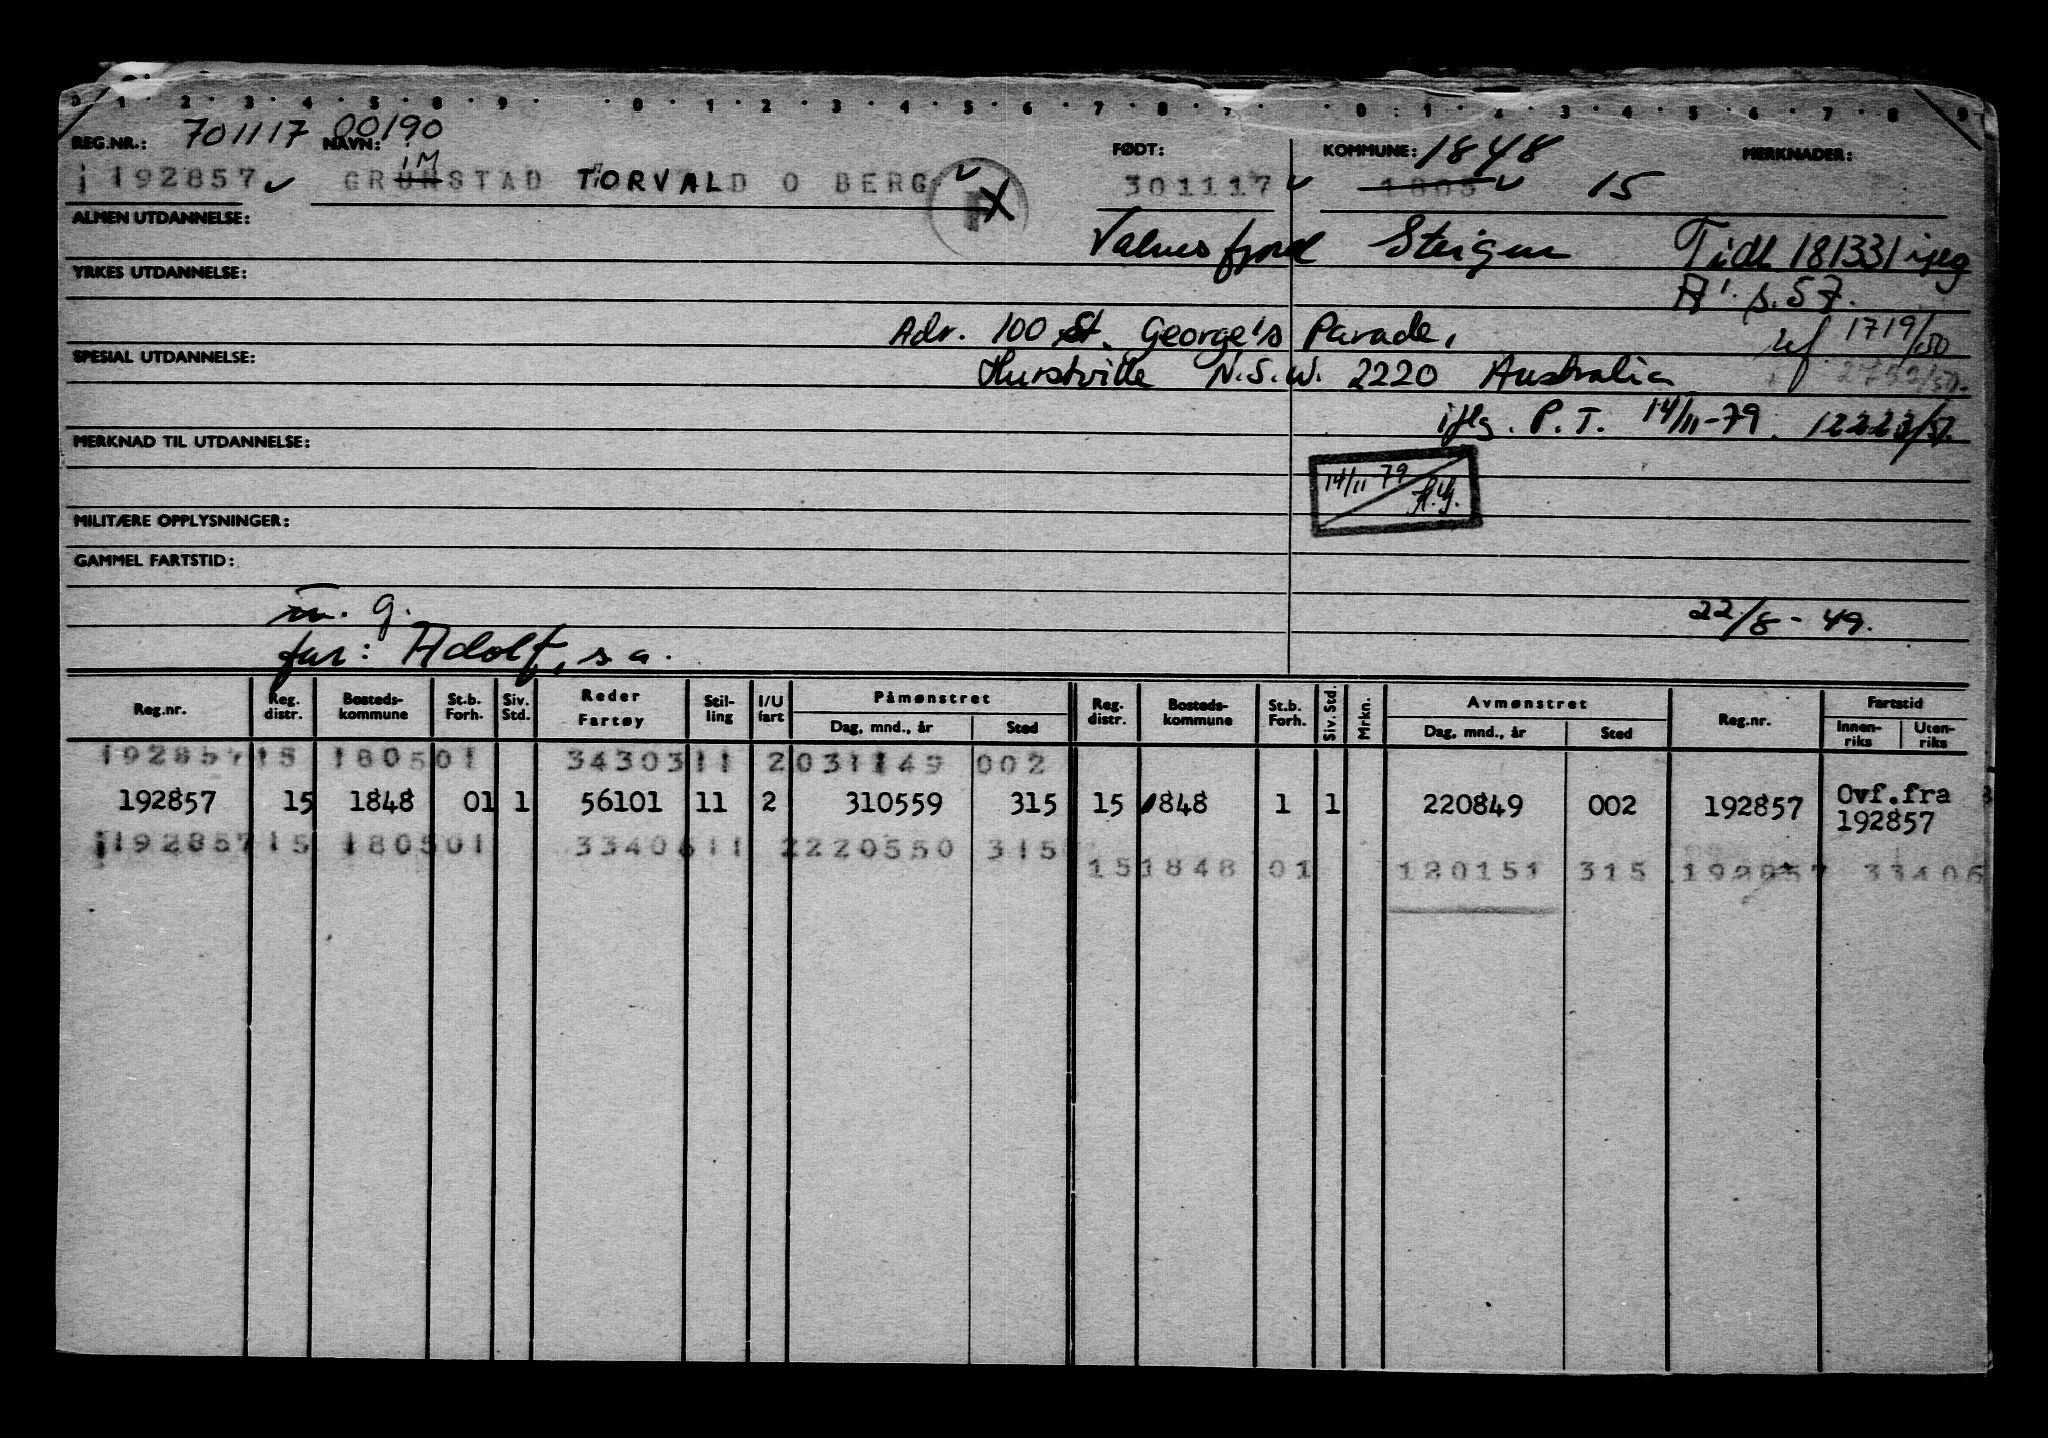 0 · 1 · 2 · 3 · 4 · 5 · 8 · 9 · · 0 · 1 · 2 · 3 · 4 · 5 · 6 · 7 · 8 · 7 · · 0 : 1 · 2 · 3 · 4 · 5 · 6 · 7 · 8 · 9
REG.NR.: 701117 00190 NAVN: FØDT: KOMMUNE: 1848 MERKNADER:
IM
192857 GRUNSTAD TORVALD O BERG 301117 1805 15
ALMEN UTDANNELSE:
Valnesfjord Steigen Tidl 181331 iflg
YRKES UTDANNELSE:
A'. s. 57.
Adr. 100 St. George's Parade, uf 1719/50
SPESIAL UTDANNELSE:
Hurstville N.S.W. 2220 Australia
iflg. P.T. 14/11-79. 12223/51.
MERKNAD TIL UTDANNELSE:
14/11 79
MILITÆRE OPPLYSNINGER:
GAMMEL FARTSTID:
m. g. 22/8-49.
far: Adolf, s a.
Reg.nr. Reg. distr. Bosteds-kommune St.b. Forh. Siv. Std. Reder Fartøy Stil-ling I/U fart Påmønstret Dag, mnd., år Sted Reg. distr. Bosteds-kommune St.b. Forh. Siv. Std. Mrkn. Avmønstret Dag, mnd., år Sted Reg.nr. Fartstid Innen-riks Uten-riks
192857 15 1805 01 34303 11 2 031149 002
192857 15 1848 01 1 56101 11 2 310559 315 15 1848 1 1 220849 002 192857 Ovf.fra
192857
192857 15 1805 01 33406 11 2 220550 315
15 1848 01 120151 315 192857 33406